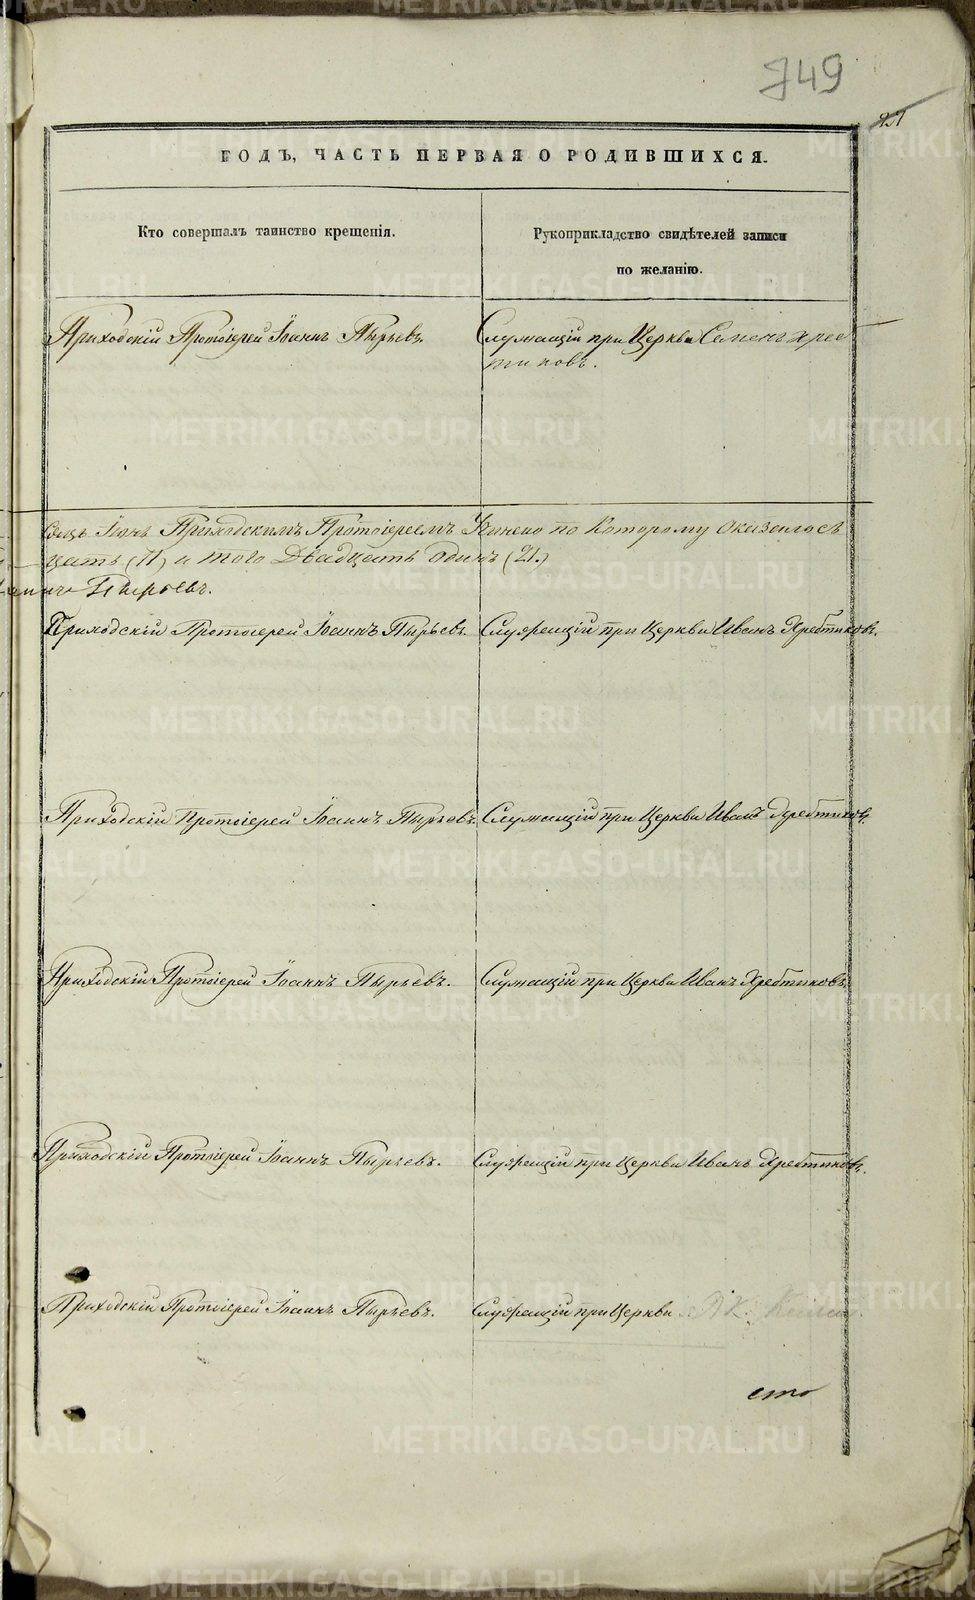 749
ГОДЪ, ЧАСТЬ ПЕРВАЯ О РОДИВШИХСЯ.
Кто совершалъ таинство крещенія.
Рукоприкладство свидѣтелей записи
по желанію.
Приходскій Протоіерей Іоаннъ Пырьевъ.
Служащій при Церкви Семенъ Хреб
тиковъ.
Приходскимъ Протоіереемъ по которому оказалось
(11) и того Двадцать одинъ (21.)
Пырьевъ.
Приходскій Протоіерей Іоаннъ Пырьевъ.
Служащій при Церкви Иванъ Хребтиковъ.
Приходскій Протоіерей Іоаннъ Пырьевъ.
Служащій при Церкви Иванъ Хребтиковъ.
Приходскій Протоіерей Іоаннъ Пырьевъ.
Служащій при Церкви Иванъ Хребтиковъ.
Приходскій Протоіерей Іоаннъ Пырьевъ.
Служащій при Церкви Иванъ Хребтиковъ.
Приходскій Протоіерей Іоаннъ Пырьевъ.
Служащій при Церкви
сто
METRIKI.GASO-URAL.RU